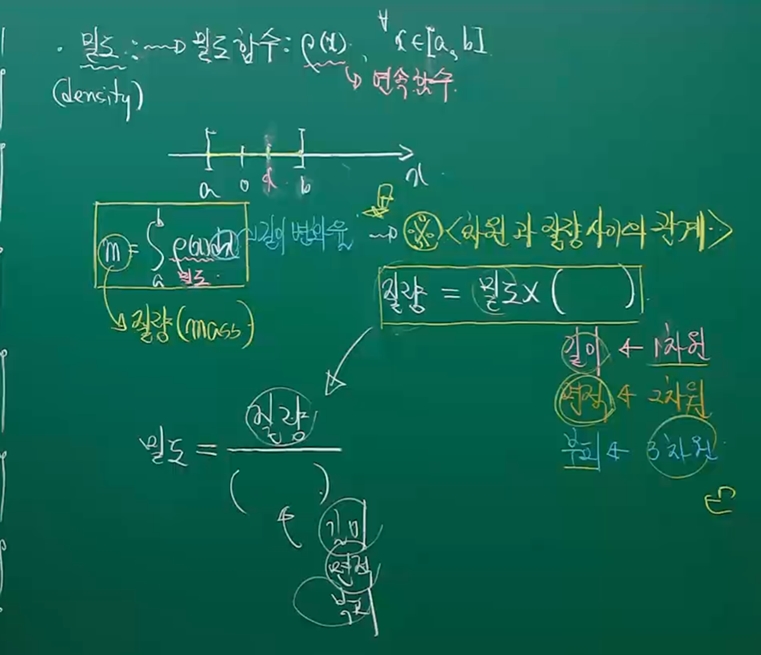 · 밀도 : ⇝ 밀도함수: ρ(x), ∀x∈[a, b]
(density) ↳ 연속함수
a 0 x b x
m = ∫_a^b ρ(x)dx 길이 변화율 ⇝ ※ <차원과 질량사이의 관계>
밀도
↳ 질량(mass)
질량 = 밀도 × ( )
길이 ← 1차원
면적 ← 2차원
부피 ← 3차원
밀도 = 질량 / ( )
길이
면적
부피